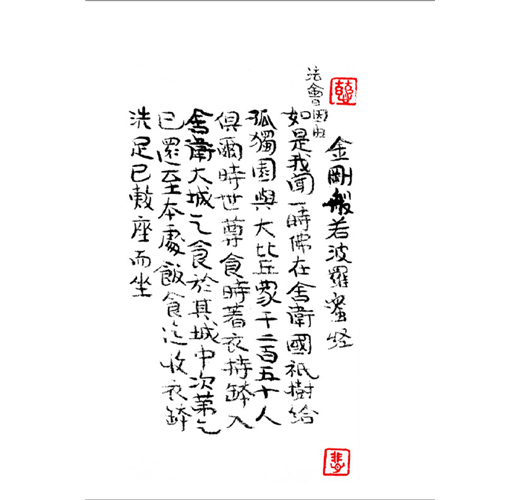 金剛般若波羅蜜經
法會因由
如是我聞一時佛在舍衛國祇樹給
孤獨園與大比丘眾千二百五十人
俱爾時世尊食時著衣持缽入
舍衛大城乞食於其城中次第乞
已還至本處飯食訖收衣缽
洗足已敷座而坐